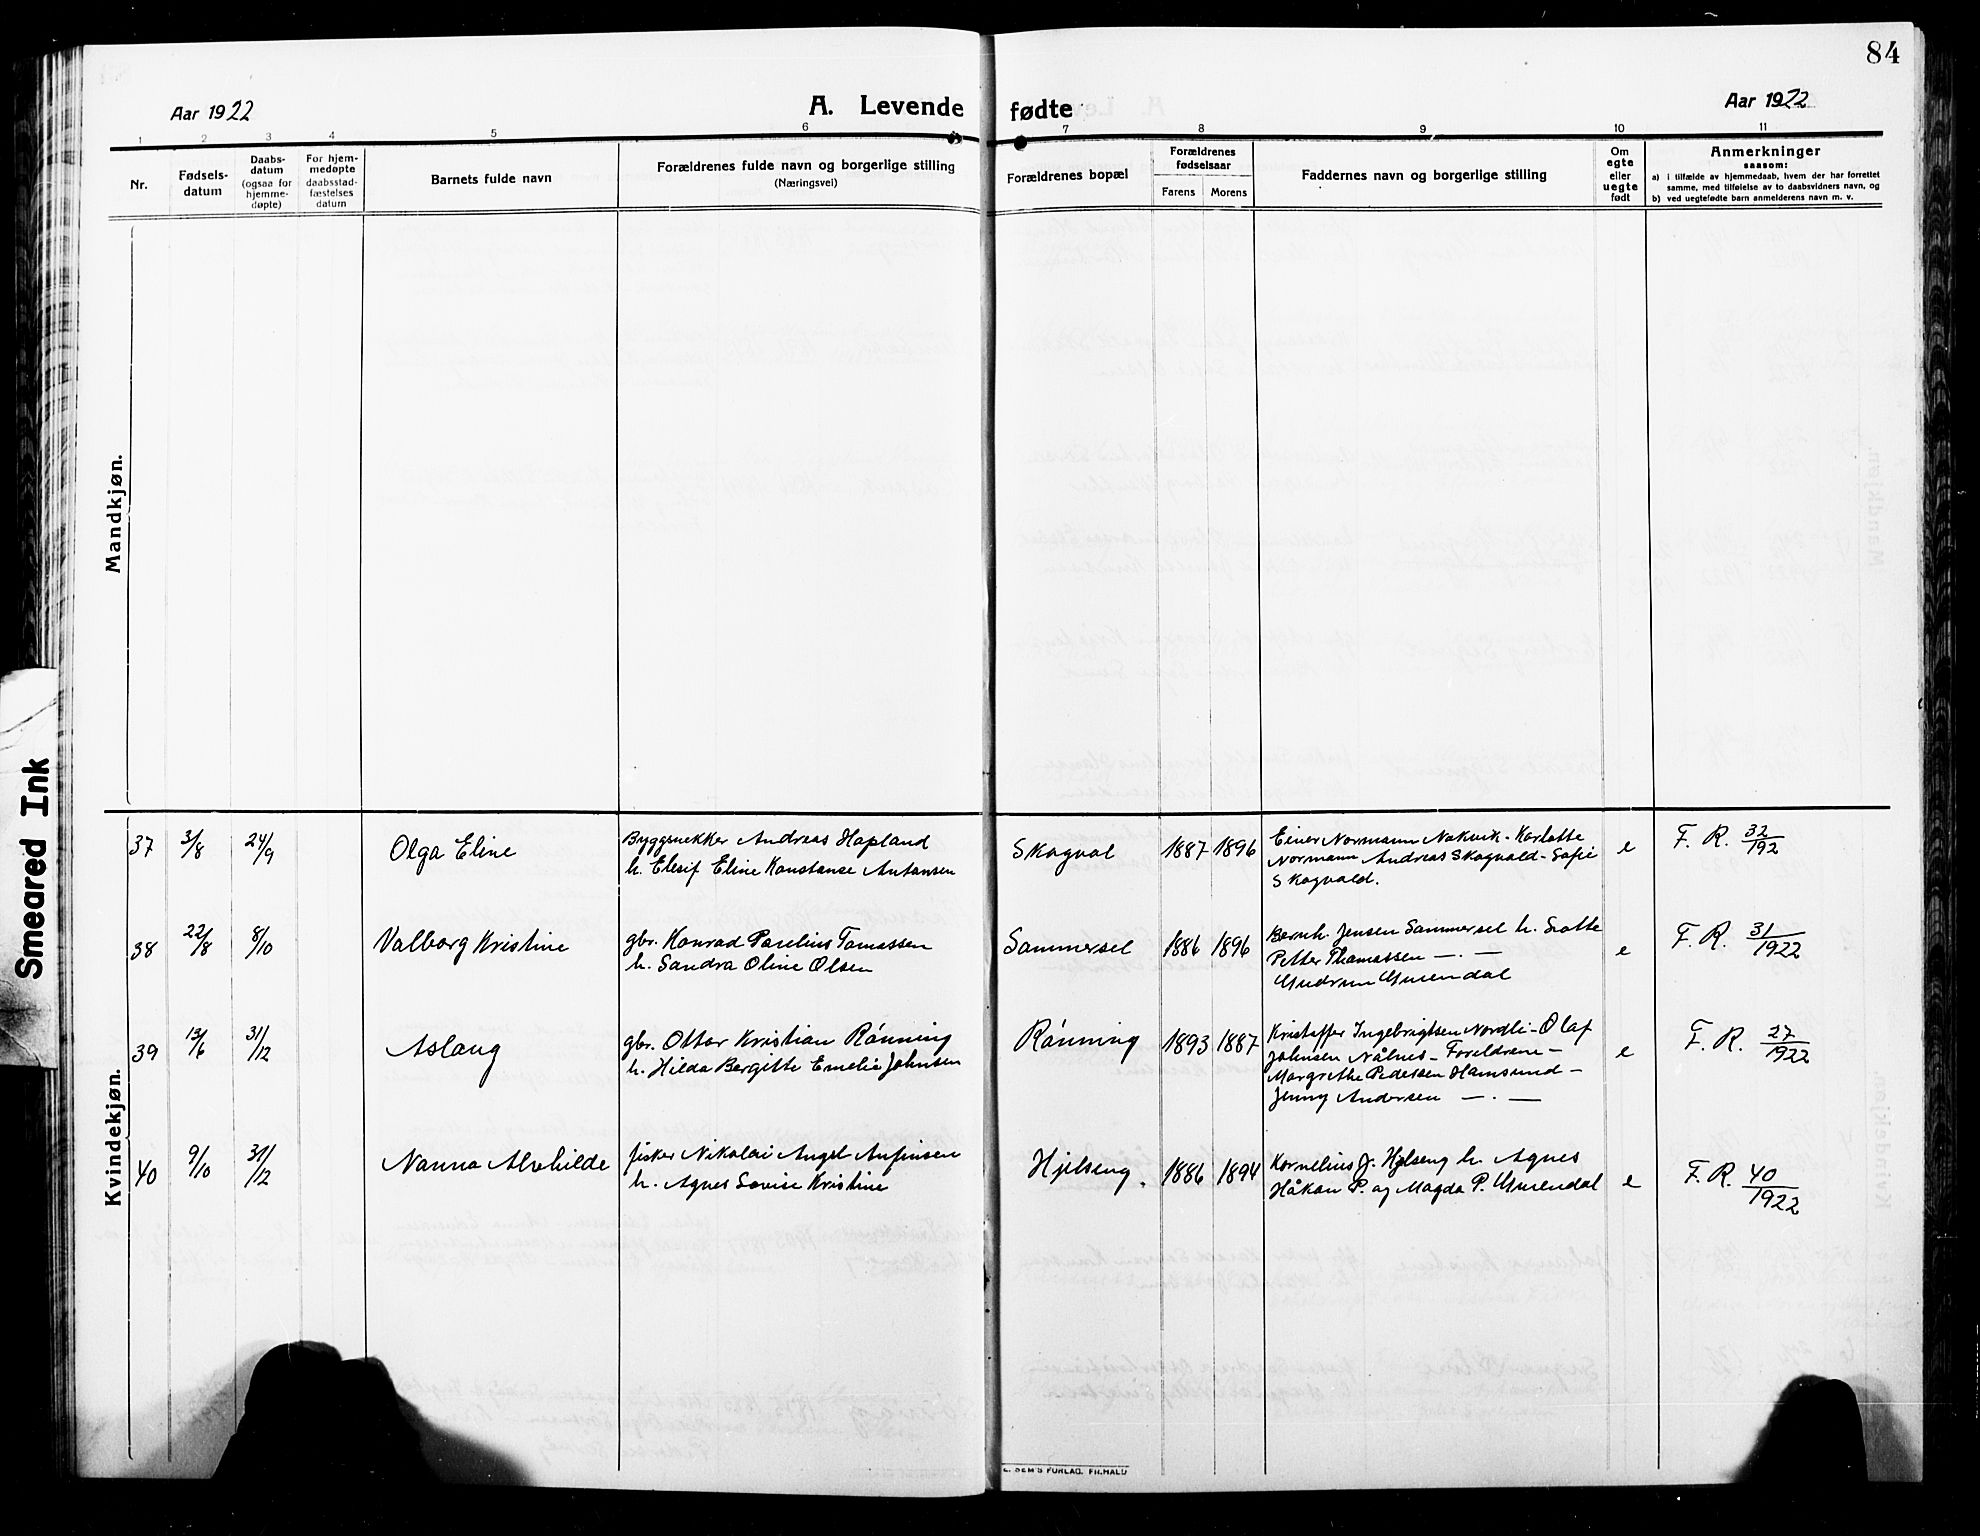 84
Aar 1922
A. Levende fødte
Aar 1922
1 2 3 4 5 6 7 8 9 10 11
Nr.
Fødsels-
datum
Daabs-
datum
(ogsaa for
hjemme-
døpte)
For hjem-
medøpte
daabsstad-
fæstelses
datum
Barnets fulde navn
Forældrenes fulde navn og borgerlige stilling
(Næringsvei)
Forældrenes bopæl
Forældrenes
fødselsaar
Farens Morens
Faddernes navn og borgerlige stilling
Om
egte
eller
uegte
født
Anmerkninger
saasom:
a) i tilfælde av hjemmedaab, hvem der har forrettet
samme, med tilføielse av to daabsvidners navn, og
b) ved uegtefødte barn anmelderens navn m. v.
Mandkjøn.
Smeared Ink
Kvindekjøn.
37 3/8 24/9 Olga Eline
Byggsnekker Andreas Hopland
h. Elesif Eline Konstanse Antonsen
Skogvol 1887 1896
Einer Normann Nakvik - Karlotte
Normann Andreas Skogvold - Sofie
Skogvold.
e F. R. 32/192
38 22/8 8/10 Valborg Kristine
gbr. Konrad Parelius Tomassen
h. Sandra Oline Olsen
Sommersel 1886 1896
Bernh. Jensen Sommersel h. Lotte
Petter Thomassen — . —
Gudrun
e F. R. 31/1922
39 13/6 31/12 Aslaug
gbr. Ottar Kristian Rønning
h. Hilda Bergitte Emelie Johnsen
Rønning 1893 1887
Kristoffer Ingebrigtsen Nordli - Olaf
Johnsen Nålnes - Foreldrene -
Margrethe Pedersen Hamsund -
Jenny Andersen — . —
e F. R. 27/1922
40 9/10 31/12 Nanna Alvhilde
fisker Nikolai Angel Anfinsen
h. Agnes Lovise Kristine
Hjelseng. 1886 1894
Kornelius J. Hjelseng h. Agnes
Håkon P. og Magda P.
e F. R. 40/1922
E. SEM'S FORLAG, FR.HALD